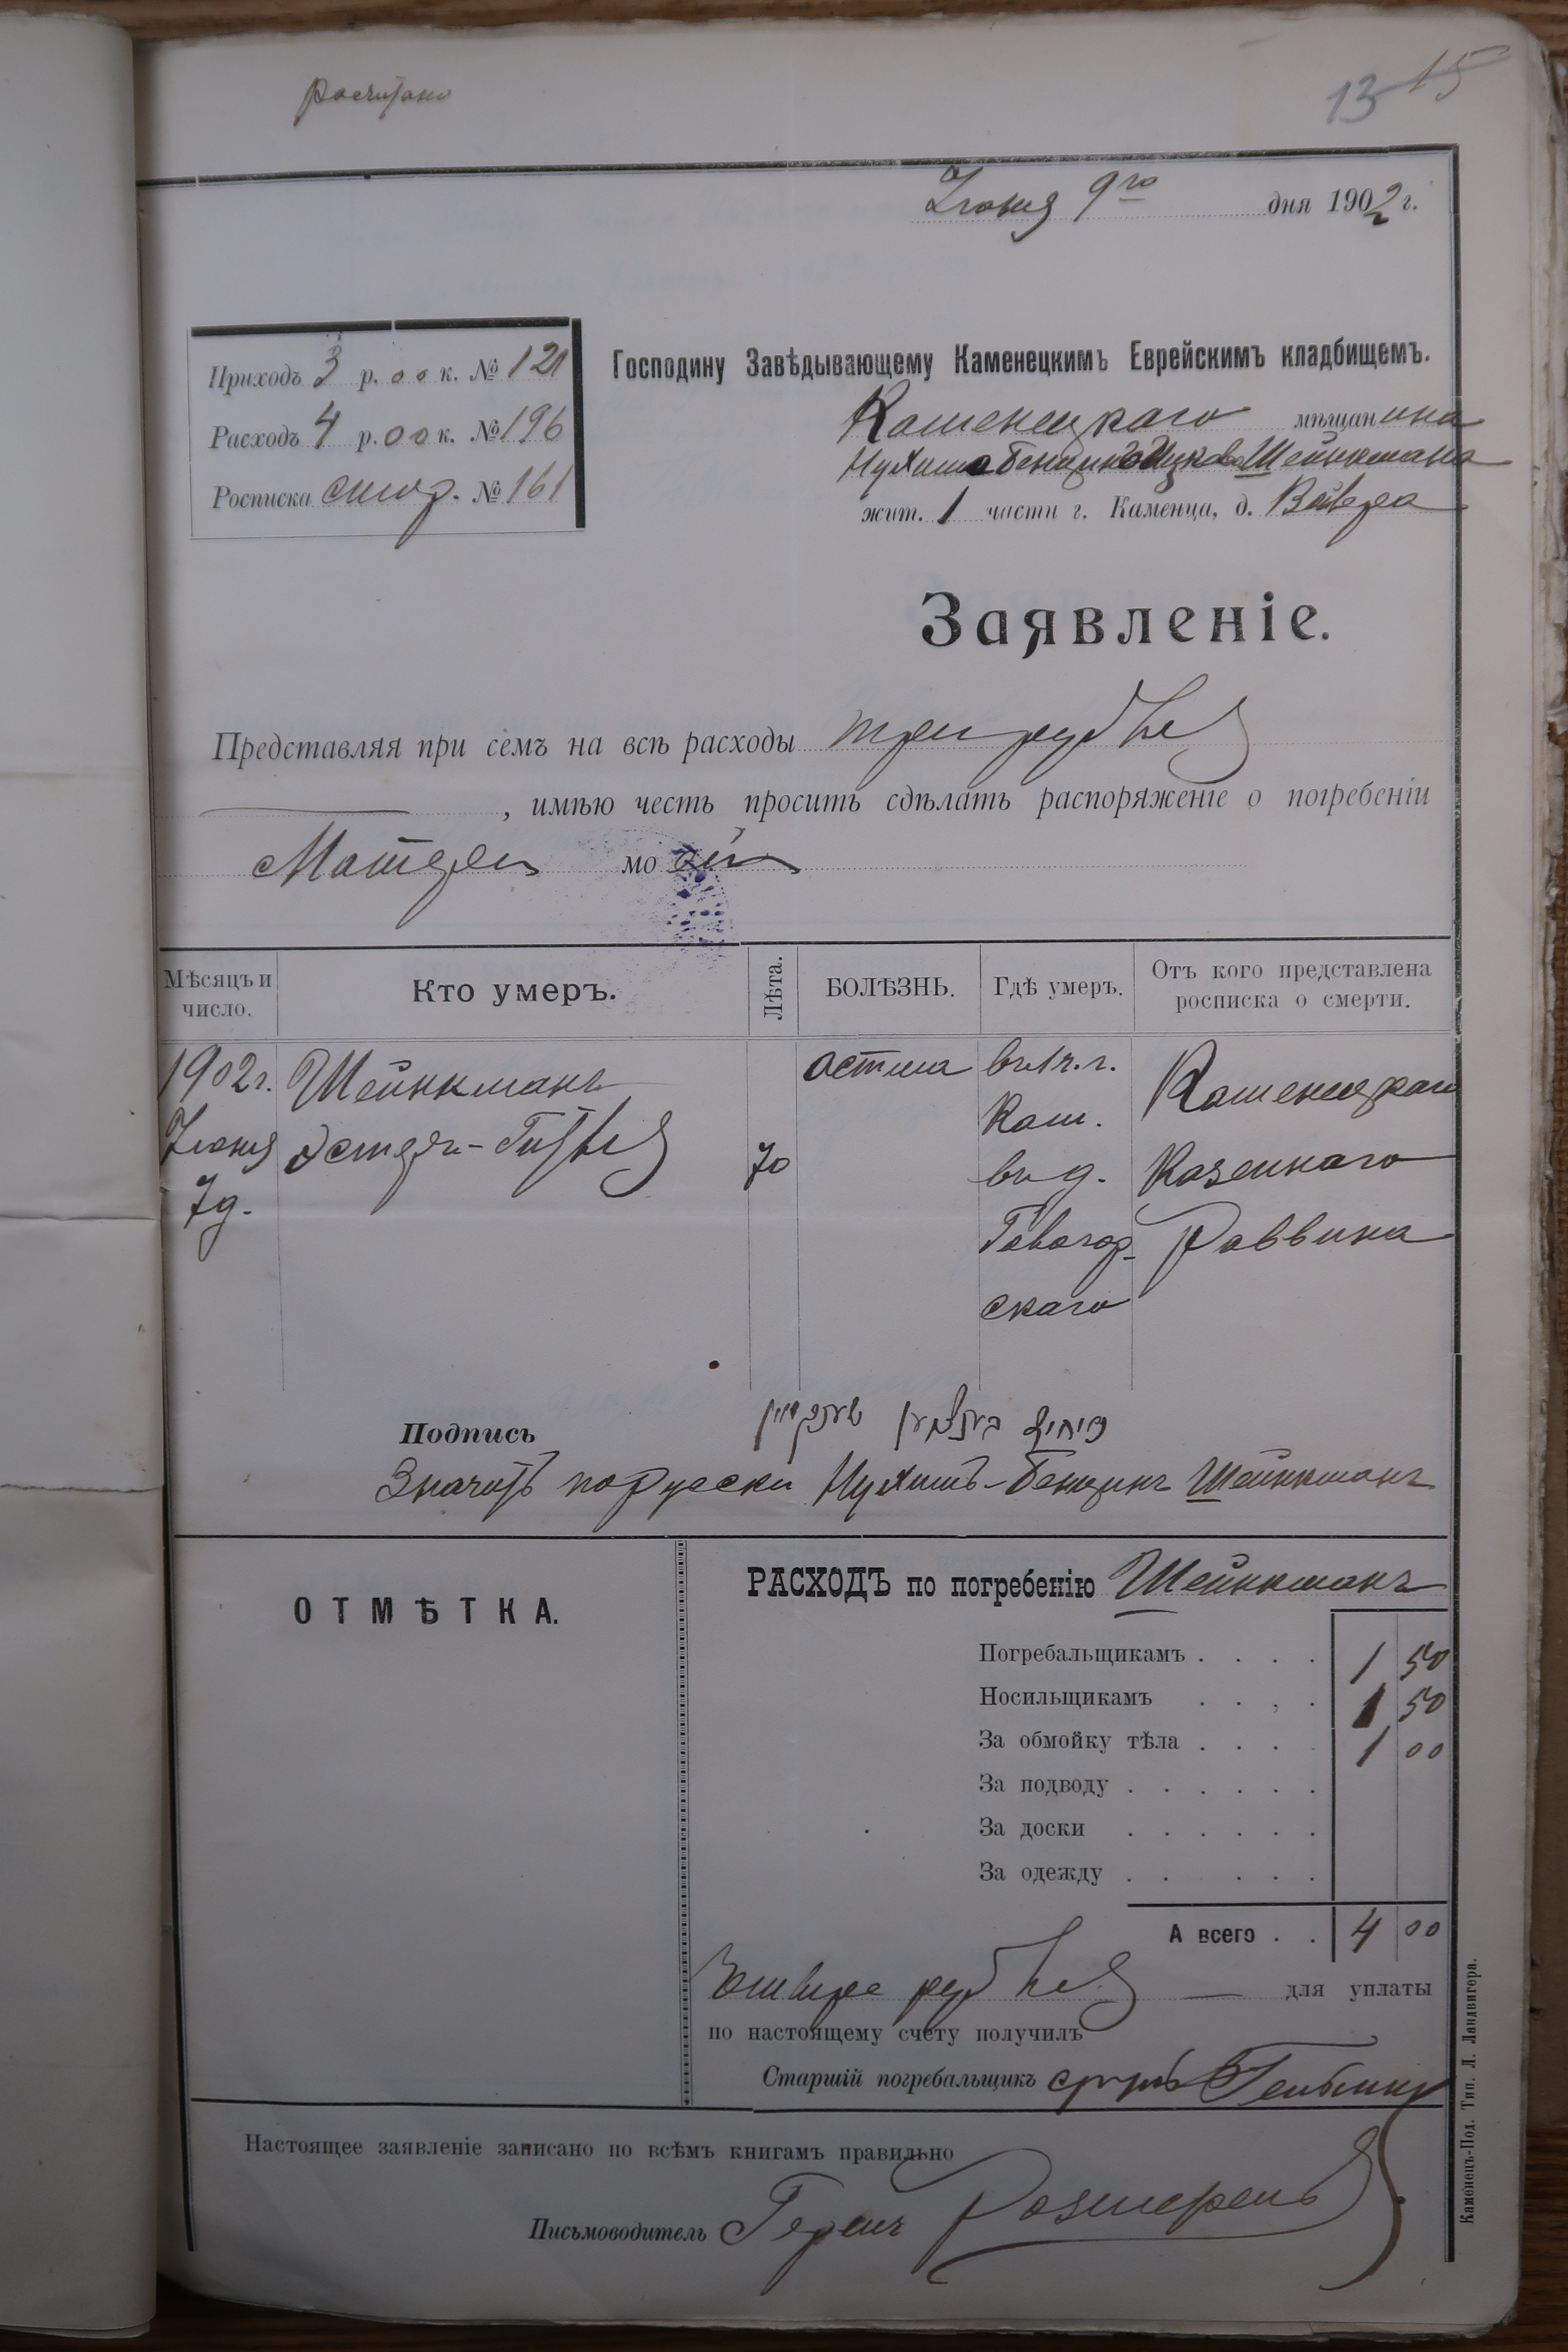 13 15
Іюня 9го дня 1902 г.
Приходъ 3 р. 00 к. № 121
Расходъ 4 р. 00 к. № 196
Росписка № 161
Господину Завѣдывающему Каменецкимъ Еврейскимъ кладбищемъ.
Каменецкаго мѣщанина
Нухима Бенциона Шейнкмана
жит. 1 части г. Каменца, д.
Заявленіе.
Представляя при семъ на всѣ расходы три рубля
, имѣю честь просить сдѣлать распоряженіе о погребеніи
Матери моей
Мѣсяцъ и число.
Кто умеръ.
Лѣта.
БОЛѢЗНЬ.
Гдѣ умеръ.
Отъ кого представлена росписка о смерти.
1902 г.
Іюня
7 д.
Шейнкманъ
Эстеръ-Гитля
70
астма
въ 1 ч. г.
Кам.
въ д.
скаго
Каменецкаго
Казеннаго
Раввина
Подпись
Значитъ по русски Нухимъ-Бенционъ Шейнкманъ
ОТМѢТКА.
РАСХОДЪ по погребенію Шейнкманъ
Погребальщикамъ . . . . 1 50
Носильщикамъ . . . . 1 50
За обмойку тѣла . . . . 1 00
За подводу . . . . . .
За доски . . . . . .
За одежду . . . . . .
А всего . . 4 00
Четыре рубля — для уплаты
по настоящему счету получилъ
Старшій погребальщикъ
Настоящее заявленіе записано по всѣмъ книгамъ правильно
Письмоводитель
Каменецъ-Под. Тип. Л. Ландвигера.